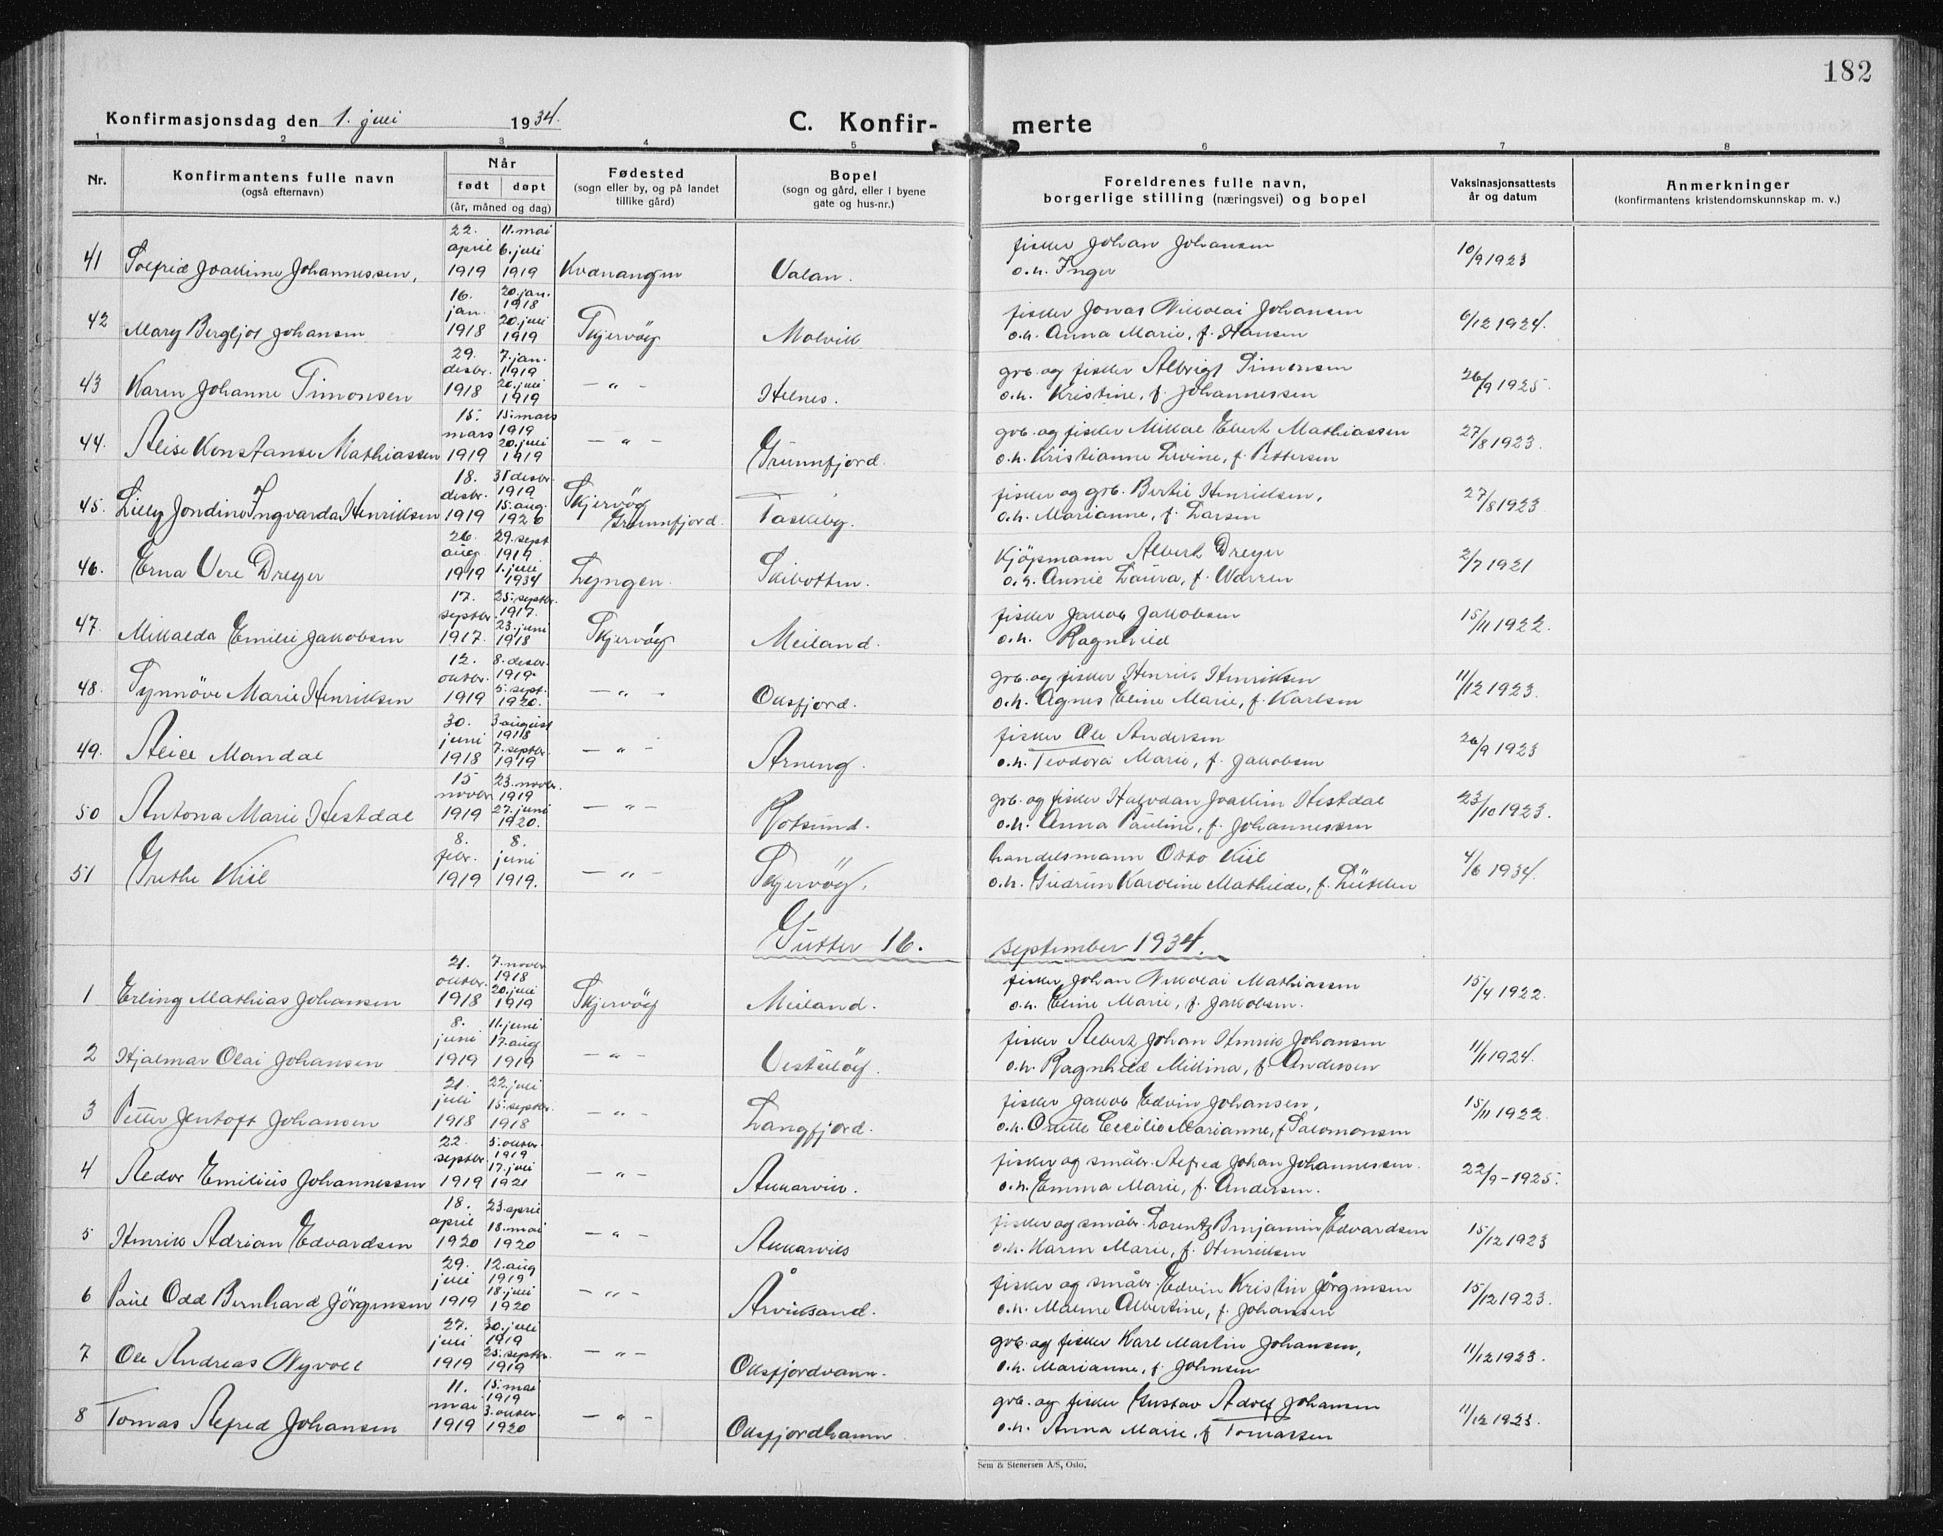 182
Konfirmasjonsdag den 1. juli 1934. C. Konfir- merte
1 2 3 4 5 6 7 8
Nr. Konfirmantens fulle navn (også efternavn) Når født døpt (år, måned og dag) Fødested (sogn eller by, og på landet tillike gård) Bopel (sogn og gård, eller i byene gate og hus-nr.) Foreldrenes fulle navn, borgerlige stilling (næringsvei) og bopel Vaksinasjonsattests år og datum Anmerkninger (konfirmantens kristendomskunnskap m. v.)
41 Solfrid Joakime Johannessen, 22. april 1919 11. mai 6. juli 1919 Kvænangen Valan. fisker Johan Johansen o.h. Inger 10/9 1923
42 Mary Bergljot Johansen 16. jan. 1918 20. jan. 1918 20. juli 1919 Skjervöy Molvik fisker Jonas Nikolai Johansen o.h. Anna Marie, f. Hansen 6/12 1924.
43 Karen Johanne Simonsen 29. desbr. 1918 7. jan. 1919 20. juli 1919 — " — Helnes. grb. og fisker Albrigt Simonsen o.h. Kristine, f. Johannessen 26/9 1925.
44. Alise Konstanse Mathiassen 15. mars 1919 15. mars 1919 20. juli 1919 — " — Grunnfjord. grb. og fisker Mikal Ebert Mathiassen o.h. Kristianne Lovine, f. Pettersen 27/8 1923.
45. Lilly Jondine Ingvarda Henriksen 18. desbr. 1919 31 desbr. 1919 15. aug. 1920 Skjervöy Grunnfjord. Taskeby. fisker og grb. Bertil Henriksen, o.h. Marianne, f. Larsen 27/8 1923
46. Erna Vere Dreyer 26. aug. 1919 29. sept 1919. 1. juli 1934 Lyngen. Skibotten. Kjöpmann Albert Dreyer o.h. Annie Laura, f. Warren 2/7 1921
47. Mikalda Emilie Jakobsen 17. septbr. 1917. 25. septbr. 1917. 23. juni 1918 Skjervöy Meiland. fisker Jakob Jakobsen o.h. Ragnhild 15/11 1922.
48. Synnöve Marie Henriksen 12. oktbr. 1919 8. desbr. 1919 5. sept. 1920. — " — Oksfjord. grb. og fisker Henrik Henriksen o.h. Agnes Eline Marie, f. Karlsen 11/12 1923.
49. Alice Mandal 30. juni 1918 3 august 1918 7. septbr. 1919 — " — Arneng. fisker Ole Andersen o.h. Teodora Marie, f. Jakobsen 26/9 1923
50 Antona Marie Hestdal 15 novbr 1919 23. novbr. 1919 27. juni 1920. — " — Rotsund. grb. og fisker Halvdan Joakim Hestdal o.h. Anna Pauline, f. Johannessen 23/10 1923.
51 Grethe Kiil 8. febr. 1919 8. juni 1919. — " — Skjervöy. handelsmann Otto Kiil o.h. Gudrun Karoline Mathilde, f. Lükken 4/6 1934.
Gutter 16. september 1934.
1 Erling Mathias Johansen 21. oktbr. 1918 7. novbr 1918 20. juli 1919 Skjervöy Meiland. fisker Johan Nikolai Mathiassen o.h. Eline Marie, f. Jakobsen. 15/4 1922.
2 Hjalmar Olai Johansen 8. juni 1919 11. juni 17. aug 1919 — " — Uestulöy. fisker Albert Johan Henrik Johansen o.h. Ragnhild Mikkina, f. Andersen 11/1 1924.
3 Petter Jentoft Johansen 21. juli 1918 22. juli 15. septbr. 1918 — " — Langfjord. fisker Jakob Edvin Johansen, o.h. Orutte Cecilie Marianne, f. Salomonsen 15/11 1922
4 Aldor Emilius Johannessen 22. septbr. 1919 5. oktbr. 1919 17. juli 1921 — " — Akkarvik. fisker og småbr. Alfred Johan Johannessen. o.h. Emma Marie, f. Andersen. 22/9-1925.
5 Henrik Adrian Edvardsen 18. april 1920 23. april 18. mai 1920 — " — Akkarvik fisker og småbr. Lorentz Benjamin Edvardsen o.h. Karen Marie, f. Henriksen 15/12 1923
6 Paul Odd Bernhard Jörgensen 29. juli 1919 12. aug 1919 18. juli 1920 — " — Årviksand. fisker og småbr. Edvin Kristin Jörgensen o.h. Malene Albertine, f. Johansen 15/12 1923.
7 Ole Andreas Nyvoll 27. juli 1919 30. juli 1919 25. septbr. 1919 — " — Oksfjordvann. grb. og fisker Karl Martin Johansen, o.h. Marianne, f. Johnsen 11/12 1923.
8 Tomas Alfred Johansen 11. mai 1919 15. mai 1919 3. oktbr 1920 — " — Oksfjordhamn. grb. og fisker Gustav Adolf Johansen o.h. Anna Marie, f. Tomassen 11/12 1923.
Sem & Stenersen A/S, Oslo.